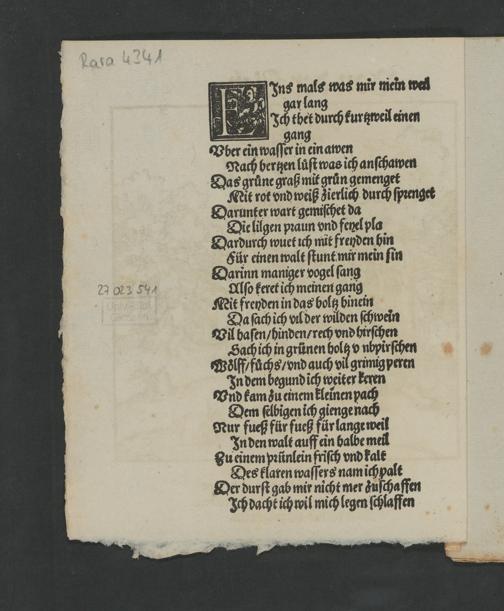 Rara 4341
EIns mals was mir mein weil
gar lang
Ich thet durch kurtzweil einen
gang
Vber ein wasser in ein awen
Nach hertzen lüst was ich anschawen
Das grüne graß mit grün gemenget
Mit rot vnd weiß zierlich durch sprenget
Darunter wart gemischet da
Die lilgen praun vnd feyel pla
Dardurch wuet ich mit freyden hin
Für einen walt stunt mir mein sin
Darinn maniger vogel sang
Also keret ich meinen gang
Mit freyden in das holtz hinein
Da sach ich vil der wilden schwein
Vil hasen/hinden/rech vnd hirschen
Sach ich in grünen holtz vmbpirschen
Wölff/füchs/vnd auch vil grimig peren
In dem begund ich weiter keren
Vnd kam zu einem kleinen pach
Dem selbigen ich gienge nach
Nur fueß für fueß für lange weil
In den walt auff ein halbe meil
Zu einem prünlein frisch vnd kalt
Des klaren wassers nam ich palt
Der durst gab mir nicht mer zuschaffen
Ich dacht ich wil mich legen schlaffen
27 023 541